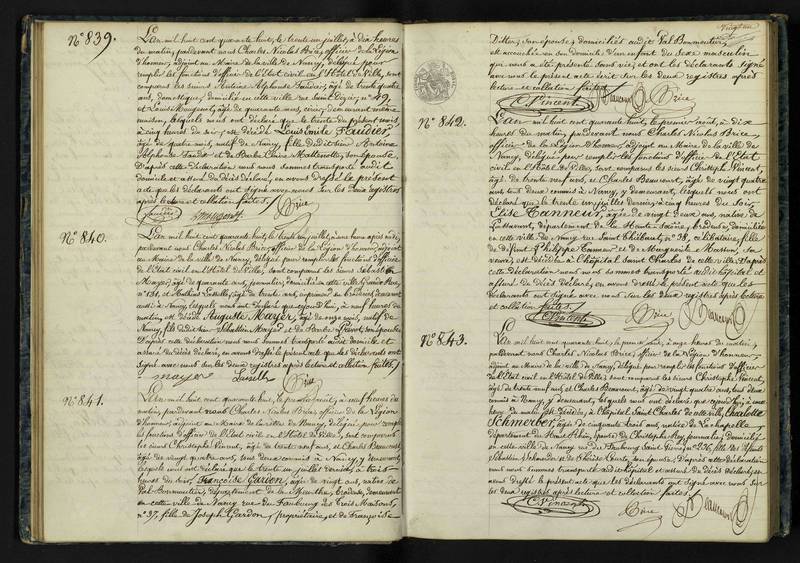 N° 839.
L'an mil huit cent quarante huit, le trente un juillet, à dix heures
du matin, pardevant nous Charles Nicolas Brice, officier de la Légion
d'honneur, adjoint au Maire de la ville de Nancy, délégué pour
remplir les fonctions d'officier de l'État civil en l'Hôtel de Ville, sont
comparus les sieurs Antoine Alphonse Faudier, âgé de trente quatre
ans, domestique, domicilié en cette ville rue Saint Dizier, n° 49,
et Louis Mougenot, âgé de quarante ans, demeurant même
maison, lesquels nous ont déclaré que le trente du présent mois
à cinq heures du soir, est décédé Louis Emile Faudier,
âgé de quatre mois, natif de Nancy, fils dudit sieur Antoine
Alphonse Faudier et de Barbe Claire son épouse.
D'après cette déclaration nous nous sommes transporté audit
domicile et assuré du décès déclaré, en avons dressé le présent
acte que les déclarants ont signé avec nous sur les deux registres
après lecture et collation faites.
Brice
N° 840.
L'an mil huit cent quarante huit, le trente un juillet, à une heure après midi,
pardevant nous Charles Nicolas Brice, officier de la Légion d'honneur, adjoint
au Maire de la ville de Nancy, délégué pour remplir les fonctions d'officier
de l'État civil en l'Hôtel de Ville, sont comparus les sieurs Sébastien
Mayer, âgé de quarante ans, domicilié en cette ville Grande Rue,
n° 131, et Mathieu âgé de trente ans, demeurant
aussi à Nancy, lesquels nous ont déclaré que aujourd'hui, à neuf heures du
matin, est décédé Auguste Mayer, âgé de onze mois, natif de
Nancy, fils dudit sieur Sébastien Mayer et de Barbe son épouse.
D'après cette déclaration nous nous sommes transporté audit domicile et
assuré du décès déclaré, en avons dressé le présent acte que les déclarants ont
signé avec nous sur les deux registres après lecture et collation faites.
Mayer Brice
N° 841.
L'an mil huit cent quarante huit, le premier août, à neuf heures du
matin, pardevant nous Charles Nicolas Brice, officier de la Légion
d'honneur, adjoint au Maire de la ville de Nancy, délégué pour remplir
les fonctions d'officier de l'État civil en l'Hôtel de Ville, sont comparus
les sieurs Christophe Vincent, âgé de trente neuf ans, et Charles Beaucourt,
âgé de vingt quatre ans, tous deux commis à Nancy, y demeurant,
lesquels nous ont déclaré que le trente un juillet dernier, à trois
heures du soir, Françoise Gardon, âgée de vingt ans, native de
Val Bonmoutier, département de la Meurthe, brodeuse, demeurant
en cette ville de Nancy, rue du Faubourg des Trois Maisons,
n° 37, fille de Joseph Gardon, propriétaire, et de Françoise
Vingt un
son épouse, domiciliés audit Val Bonmoutier,
est accouchée en son domicile d'un enfant du sexe masculin
qui nous a été présenté sans vie, et ont les déclarants signé
avec nous le présent acte écrit sur les deux registres après
lecture et collation faites.
C. Vincent Beaucourt Brice
N° 842.
L'an mil huit cent quarante huit, le premier août, à dix
heures du matin, pardevant nous Charles Nicolas Brice,
officier de la Légion d'honneur, adjoint au Maire de la ville de
Nancy, délégué pour remplir les fonctions d'officier de l'État
civil en l'Hôtel de Ville, sont comparus les sieurs Christophe Vincent,
âgé de trente neuf ans, et Charles Beaucourt, âgé de vingt quatre
ans, tous deux commis à Nancy, y demeurant, lesquels nous ont
déclaré que le trente un juillet dernier, à cinq heures du soir,
Elise Tanneur, âgée de vingt deux ans, native de
Passavant, département de la Haute Saône, brodeuse, domiciliée
en cette ville de Nancy rue Saint Thiébaut, n° 38, célibataire, fille
de défunt Philippe Tanneur et de Marguerite sa
veuve, est décédée à l'hôpital Saint Charles de cette ville. D'après
cette déclaration nous nous sommes transporté audit hôpital et
assuré du décès déclaré, en avons dressé le présent acte que les
déclarants ont signé avec nous sur les deux registres après lecture
et collation faites.
C. Vincent Brice Beaucourt
N° 843.
L'an mil huit cent quarante huit, le premier août, à onze heures du matin,
pardevant nous Charles Nicolas Brice, officier de la Légion d'honneur,
adjoint au Maire de la ville de Nancy, délégué pour remplir les fonctions d'officier
de l'État civil en l'Hôtel de Ville, sont comparus les sieurs Christophe Vincent,
âgé de trente neuf ans, et Charles Beaucourt, âgé de vingt quatre ans, tous deux
commis à Nancy, y demeurant, lesquels nous ont déclaré que
heures du matin est décédée, à l'hôpital Saint Charles de cette ville, Charlotte
Schmerber, âgée de cinquante trois ans, native de Lachapelle,
département du Haut Rhin, épouse de Christophe journalier, domiciliée
en cette ville de Nancy rue du Faubourg n° 236, fille des défunts
Sébastien Schmerber et de son épouse. D'après cette déclaration
nous nous sommes transporté audit hôpital et assuré du décès déclaré, en
avons dressé le présent acte que les déclarants ont signé avec nous sur
les deux registres après lecture et collation faites.
C. Vincent Brice Beaucourt